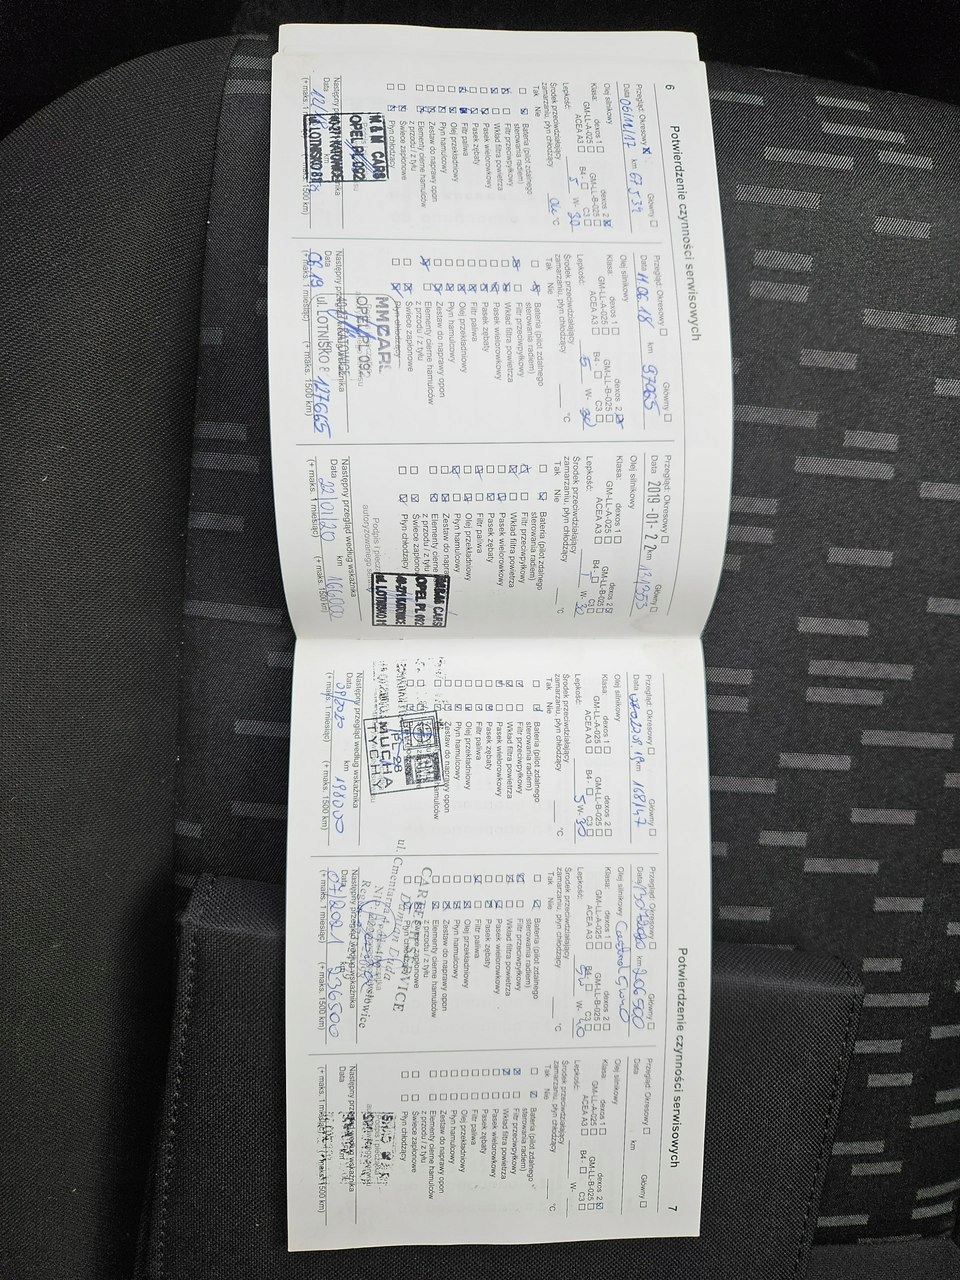 6
Potwierdzenie czynności serwisowych
Przegląd: Okresowy Główny
Data 06/11/17 km 67534
Olej silnikowy
Klasa: dexos 1 dexos 2
GM-LL-A-025 GM-LL-B-025
ACEA A3 B4 - C3
Lepkość: 5 W- 30
Środek przeciwdziałający
zamarzaniu, płyn chłodzący °C
Tak Nie
Bateria (pilot zdalnego
sterowania radiem)
Filtr przeciwpyłkowy
Wkład filtra powietrza
Pasek wielorowkowy
Pasek zębaty
Filtr paliwa
Olej przekładniowy
Płyn hamulcowy
Zestaw do naprawy opon
Elementy cierne hamulców
z przodu / z tyłu
Świece zapłonowe
Płyn chłodzący
M&M CARS
OPEL PL 092
40-271 KATOWICE
ul. LOTNISKO 81
Data
(+ maks. 1 1500 km)
Przegląd: Okresowy Główny
Data 11.06.18 km 97065
Olej silnikowy
Klasa: dexos 1 dexos 2
GM-LL-A-025 GM-LL-B-025
ACEA A3 B4 - C3
Lepkość: 5 W- 30
Środek przeciwdziałający
zamarzaniu, płyn chłodzący °C
Tak Nie
Bateria (pilot zdalnego
sterowania radiem)
Filtr przeciwpyłkowy
Wkład filtra powietrza
Pasek wielorowkowy
Pasek zębaty
Filtr paliwa
Olej przekładniowy
Płyn hamulcowy
Zestaw do naprawy opon
Elementy cierne hamulców
z przodu / z tyłu
Świece zapłonowe
Płyn chłodzący
MMCARS
OPEL PL 092
ul LOTNISKO 8
Data 06.19 127665
(+ maks. 1 miesiąc) (+ maks. 1500 km)
Przegląd: Okresowy Główny
Data 2019-01-22 km 131353
Olej silnikowy
Klasa: dexos 1 dexos 2
GM-LL-A-025 GM-LL-B-025
ACEA A3 B4 - C3
Lepkość: W- 30
Środek przeciwdziałający
zamarzaniu, płyn chłodzący °C
Tak Nie
Bateria (pilot zdalnego
sterowania radiem)
Filtr przeciwpyłkowy
Wkład filtra powietrza
Pasek wielorowkowy
Pasek zębaty
Filtr paliwa
Olej przekładniowy
Płyn hamulcowy
Zestaw do
Elementy cierne
z przodu / z tyłu
Świece zapłonowe
Płyn chłodzący
M&M CARS
OPEL PL 092
40-271 KATOWICE
ul. LOTNISKO 81
Następny przegląd według wskaźnika
Data 22/01/20 km 166000
(+ maks. 1 miesiąc) (+ maks. 1500 km)
Potwierdzenie czynności serwisowych
7
Przegląd: Okresowy Główny
Data km 168147
Olej silnikowy
Klasa: dexos 1 dexos 2
GM-LL-A-025 GM-LL-B-025
ACEA A3 B4 - C3
Lepkość: 5 W- 30
Środek przeciwdziałający
zamarzaniu, płyn chłodzący °C
Tak Nie
Bateria (pilot zdalnego
sterowania radiem)
Filtr przeciwpyłkowy
Wkład filtra powietrza
Pasek wielorowkowy
Pasek zębaty
Filtr paliwa
Olej przekładniowy
Płyn hamulcowy
Zestaw do naprawy opon
hamulców
MUCHA
PL-28
TYCHY
Następny przegląd według wskaźnika
Data 09/2020 km 198000
(+ maks. 1 miesiąc) (+ maks. 1500 km)
Przegląd: Okresowy Główny
Data km 206500
Olej silnikowy Castrol
Klasa: dexos 1 dexos 2
GM-LL-A-025 GM-LL-B-025
ACEA A3 B4 - C3
Lepkość: 5W W- 40
Środek przeciwdziałający
zamarzaniu, płyn chłodzący °C
Tak Nie
Bateria (pilot zdalnego
sterowania radiem)
Filtr przeciwpyłkowy
Wkład filtra powietrza
Pasek wielorowkowy
Pasek zębaty
Filtr paliwa
Olej przekładniowy
Płyn hamulcowy
Zestaw do naprawy opon
Elementy cierne hamulców
z przodu / z tyłu
Świece zapłonowe
Płyn chłodzący
SERVICE
ul. Cmentarna
Data 07/2021 236500
(+ maks. 1 miesiąc) (+ maks. 1500 km)
Przegląd: Okresowy Główny
Data km
Olej silnikowy
Klasa: dexos 1 dexos 2
GM-LL-A-025 GM-LL-B-025
ACEA A3 B4 - C3
Lepkość: W-
Środek przeciwdziałający
zamarzaniu, płyn chłodzący °C
Tak Nie
Bateria (pilot zdalnego
sterowania radiem)
Filtr przeciwpyłkowy
Wkład filtra powietrza
Pasek wielorowkowy
Pasek zębaty
Filtr paliwa
Olej przekładniowy
Płyn hamulcowy
Zestaw do naprawy opon
Elementy cierne hamulców
z przodu / z tyłu
Świece zapłonowe
Płyn chłodzący
Następny przegląd według wskaźnika
Data
(+ maks. 1 miesiąc) (+ maks. 1500 km)